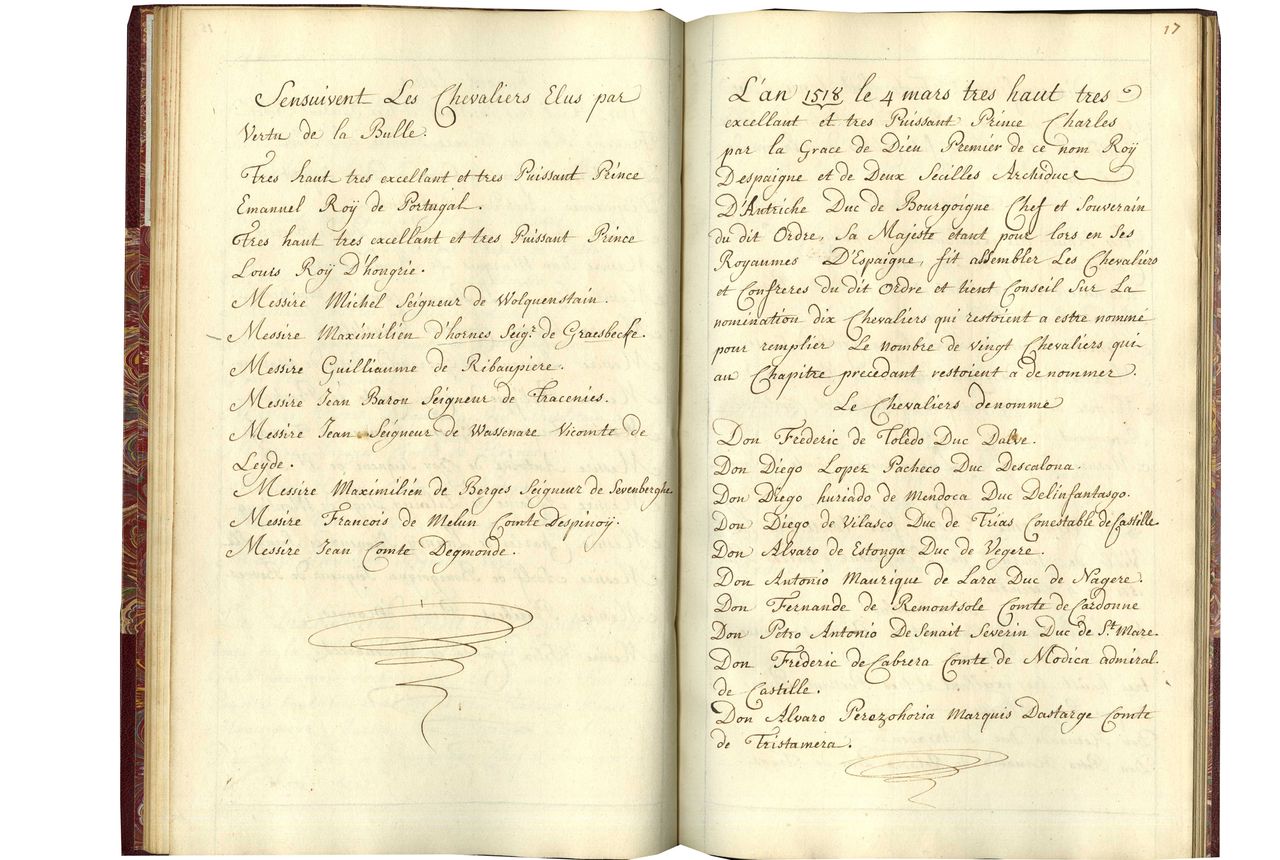 Sensuivent Les Chevaliers Elus par
Vertu de la Bulle.
Tres haut tres excellant et tres Puissant Prince
Emanuel Roÿ de Portugal.
Tres haut tres excellant et tres Puissant Prince
Louis Roÿ D'hongrie.
Messire Michel Seigneur de Wolquenstain.
Messire Maximilien d'hornes Seigr. de Graesbecke.
Messire Guilliaume de Ribaupiere.
Messire Jean Baron Seigneur de Tracenies.
Messire Jean Seigneur de Wassenare Vicomte de
Leyde.
Messire Maximilien de Berges Seigneur de Sevenberghe.
Messire Francois de Melun Comte Despinoÿ.
Messire Jean Comte Degmonde.
17
L'an 1518 le 4 mars tres haut tres
excellant et tres Puissant Prince Charles
par la Grace de Dieu Premiér de ce nom Roÿ
Despaigne et de Deux Sécilles Archiduc
D'Autriche Duc de Bourgoigne Chef et Souverain
du dit Ordre, Sa Majesté etant pour lors en Ses
Royaumes D'Espaigne, fit assembler Les Chevaliérs
et Confreres du dit Ordre et tient Conseil Sur La
nomination dix Chevaliers qui restoient a estre nommé
pour remplier Le nombre de vingt Chevaliers qui
au Chapitre precedant restoient a denommer.
Le Chevaliers denommé
Don Fréderic de Tolédo Duc Dalve.
Don Diego Lopez Pacheco Duc Descalona.
Don Diégo huriado de Mendoca Duc Delinfantasgo.
Don Diego de Vilasco Duc de Trias Conestable de Castille
Don Alvaro de Estonga Duc de Vegere.
Don Antonio Maurique de Lara Duc de Nagere.
Don Fernande de Remontsole Comte de Cardonne
Don Petro Antonio De Senait Severin Duc de St. Mare.
Don Fréderic de Cabrera Comte de Modica admiral.
de Castille.
Don Alvaro Perezohoria Marquis Dastarge Comte
de Tristamera.